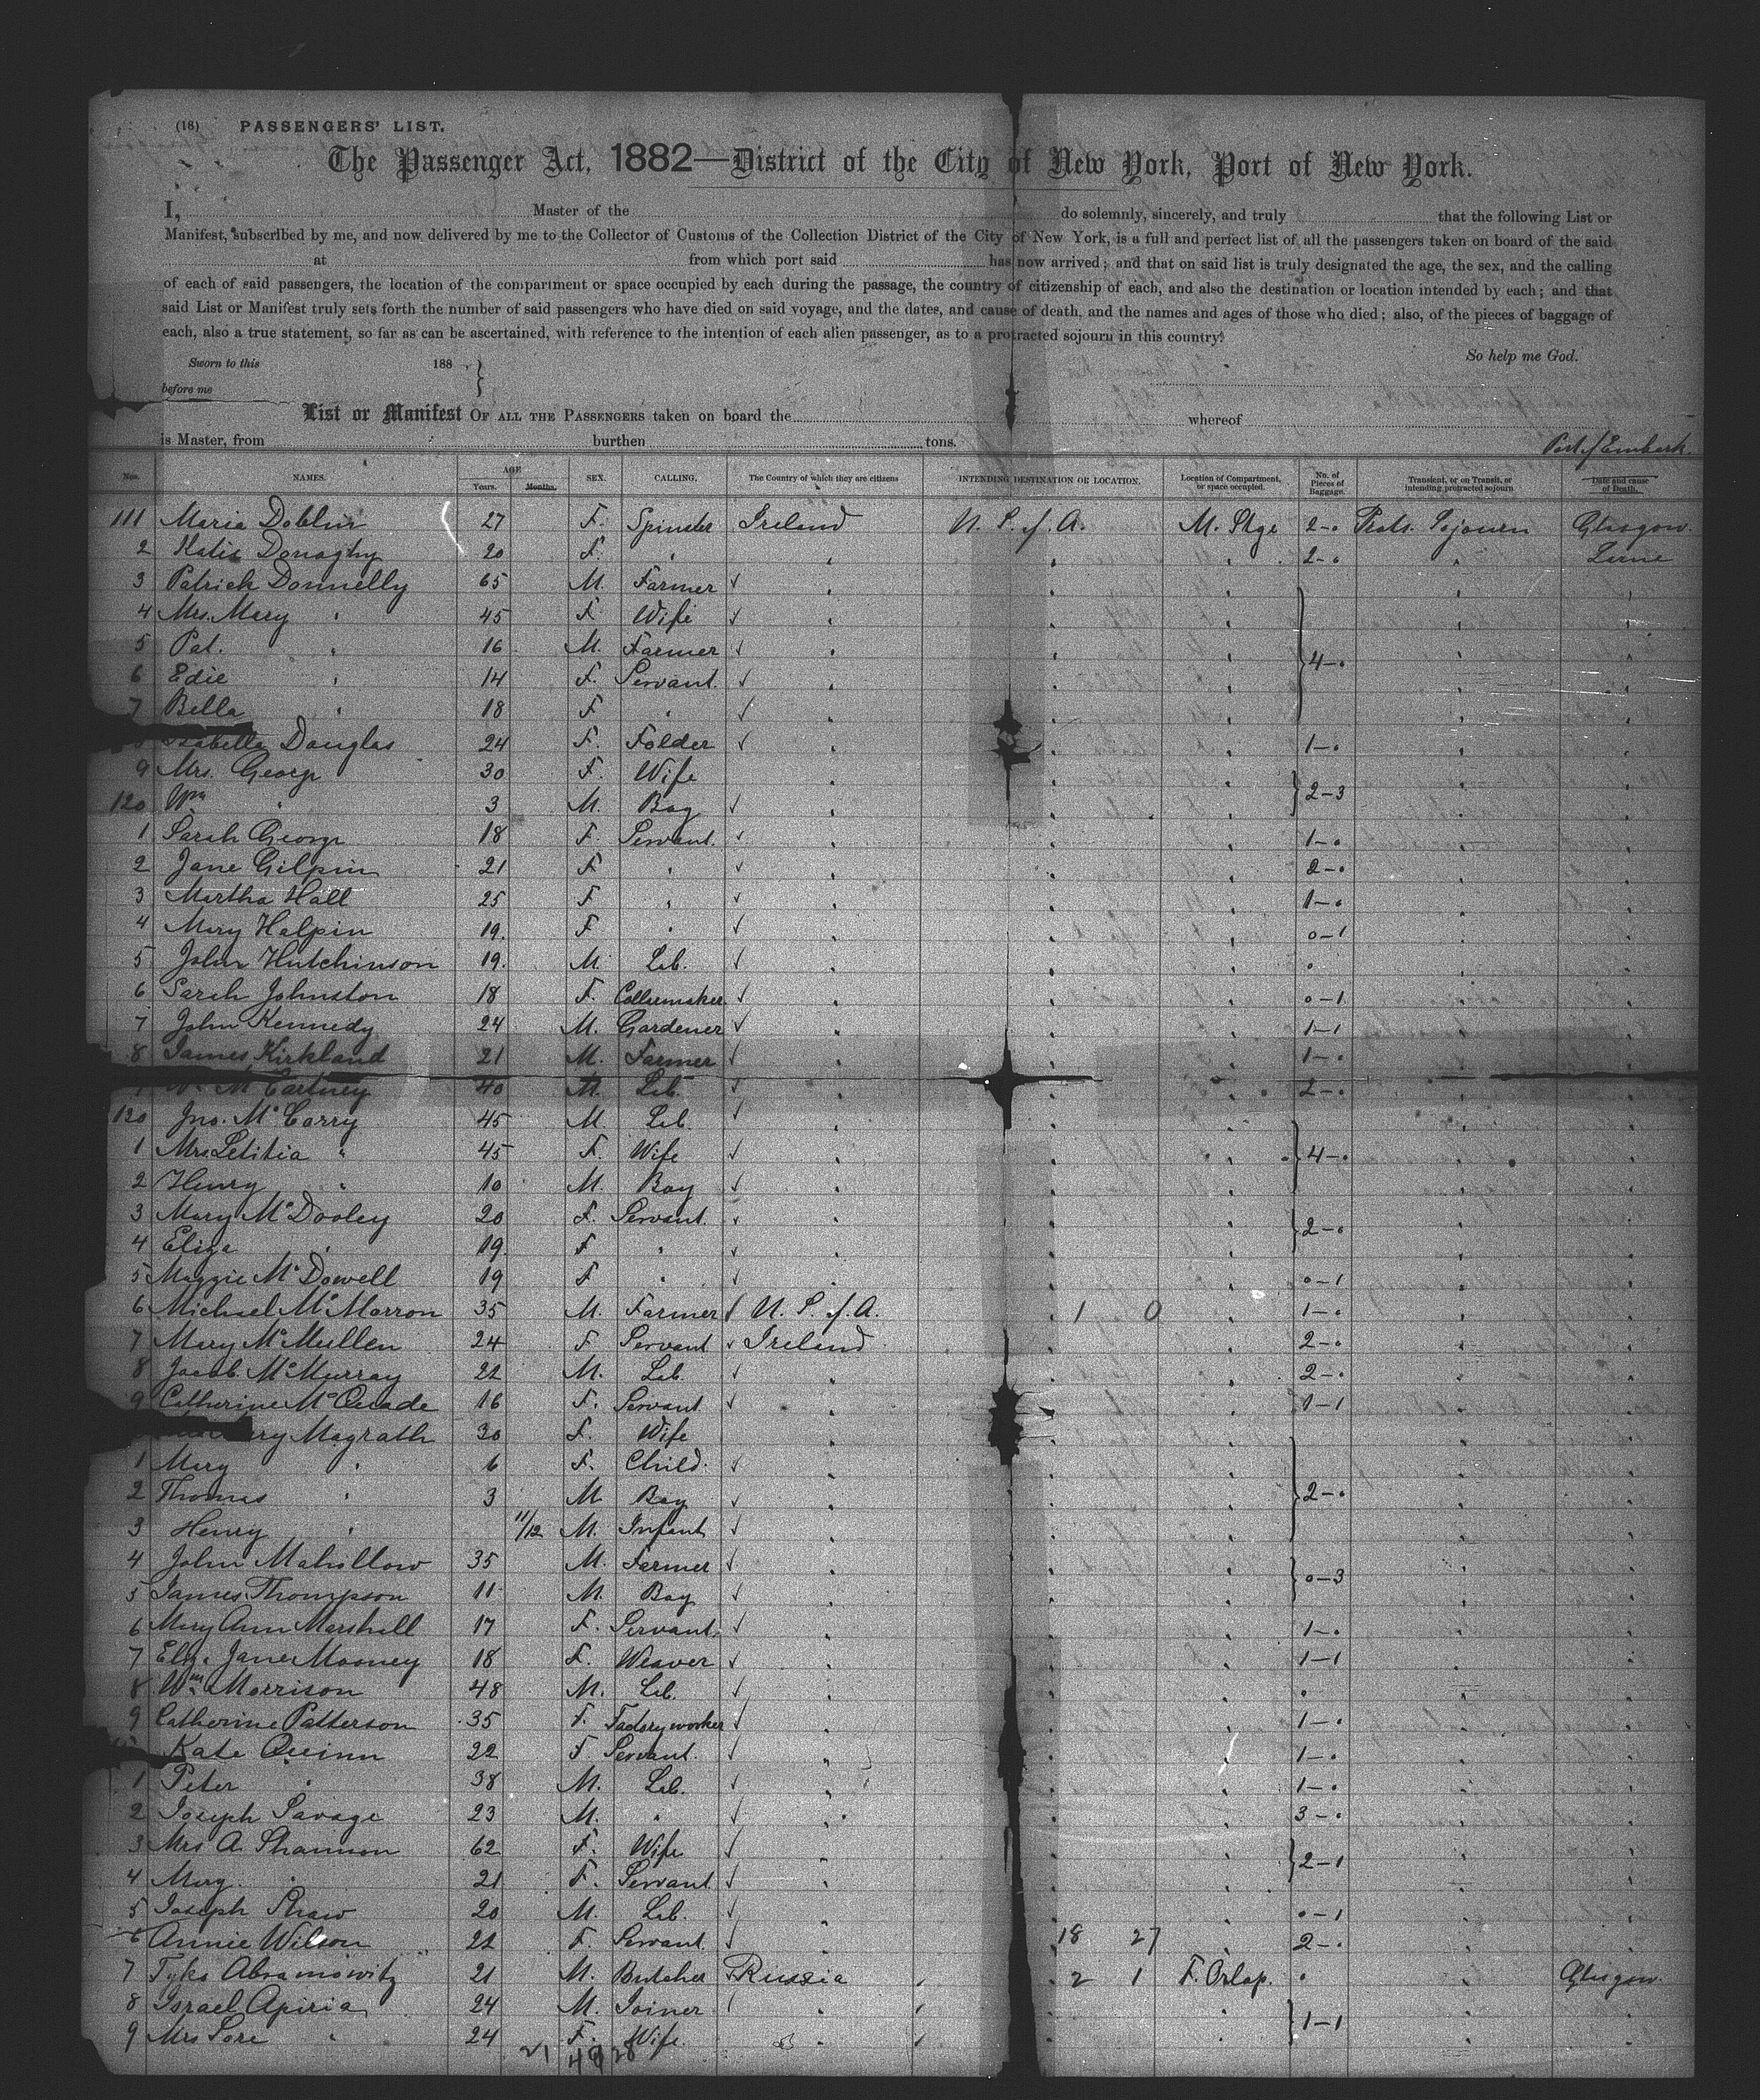 (18) PASSENGERS' LIST.
The Passenger Act, 1882—District of the City of New York, Port of New York.
I, Master of the do solemnly, sincerely, and truly that the following List or
Manifest, subscribed by me, and now delivered by me to the Collector of Customs of the Collection District of the City of New York, is a full and perfect list of all the passengers taken on board of the said
at from which port said has now arrived; and that on said list is truly designated the age, the sex, and the calling
of each of said passengers, the location of the compartment or space occupied by each during the passage, the country of citizenship of each, and also the destination or location intended by each; and that
said List or Manifest truly sets forth the number of said passengers who have died on said voyage, and the dates, and cause of death, and the names and ages of those who died; also, of the pieces of baggage of
each, also a true statement, so far as can be ascertained, with reference to the intention of each alien passenger, as to a protracted sojourn in this country.
So help me God.
Sworn to this 188
before me
List or Manifest OF ALL THE PASSENGERS taken on board the whereof
is Master, from burthen tons.
Port of Embark.
Nos. NAMES. AGE Years. Months. SEX. CALLING. The Country of which they are citizens INTENDING DESTINATION OR LOCATION. Location of Compartment, or space occupied. No. of Pieces of Baggage. Transient, or on Transit, or intending protracted sojourn Date and cause of Death.
111 Maria 27 F. Spinster Ireland U. S. of A. M. Stge 2-0 Prots. Sojourn Glasgow.
2 Katie Donaghy 20 F. " 2-0 Larne
3 Patrick Donnelly 65 M. Farmer
4 Mrs. Mary " 45 F. Wife
5 Pat. " 16 M. Farmer 4-0
6 Edie " 14 F. Servant.
7 Bella " 18 F "
Isabella Douglas 24 F. Folder 1-0
9 Mrs. George 30 F. Wife 2-3
120 Wm " 3 M. Boy
1 Sarah George 18 F. Servant. 1-0
2 Jane Gilpin 21 F " 2-0
3 Martha Hall 25 F " 1-0
4 Mary Halpin 19. F " 0-1
5 John Hutchinson 19. M. Lab. 0
6 Sarah Johnston 18 F. Collarmaker 0-1
7 John Kennedy 24 M. Gardener 1-1
8 James Kirkland 21 M. Farmer 1-0
Wm McCartney 40 M. Lab. 2-0
130 Jno. McCarry 45 M. Lab.
1 Mrs Letitia " 45 F. Wife 4-0
2 Henry " 10 M. Boy
3 Mary McDooley 20 F. Servant. 2-0
4 Eliza " 19. F "
5 Maggie McDowell 19 F " 0-1
6 Michael McMarron 35 M. Farmer U. S. of A. 1 0 1-0
7 Mary McMullen 24 F Servant Ireland 2-0
8 Jacob McMurray 22 M. Lab. 2-0
9 Catherine McQuade 16 F. Servant 1-1
Magrath 30 F. Wife
1 Mary " 6 F. Child.
2 Thomas " 3 M Boy 2-0
3 Henry " 11/12 M. Infant
4 John 35 M. Farmer 0-3
5 James Thompson 11 M. Boy
6 Mary Ann Marshall 17 F. Servant. 1-0
7 Eliza Jane Mooney 18 F. Weaver 1-1
8 Wm Morrison 48 M. Lab. 0
9 Catherine Patterson 35 F. Factory worker 1-0
Kate Quinn 22 F. Servant. 1-0
1 Peter " 38 M. Lab. 1-0
2 Joseph Savage 23 M. " 3-0
3 Mrs A. Shannon 62 F. Wife 2-1
4 Mary " 21 F. Servant.
5 Joseph Shaw 20 M. Lab. 0-1
6 Annie Wilson 22 F. Servant. 18 27 2-0
7 Abramowitz 21 M. Butcher Russia 2 1 F. Orlop. 0 Glasgow.
8 Israel Apiria 24 M. Joiner 1-1
9 Mrs Sore " 24 F. Wife
21 49 28